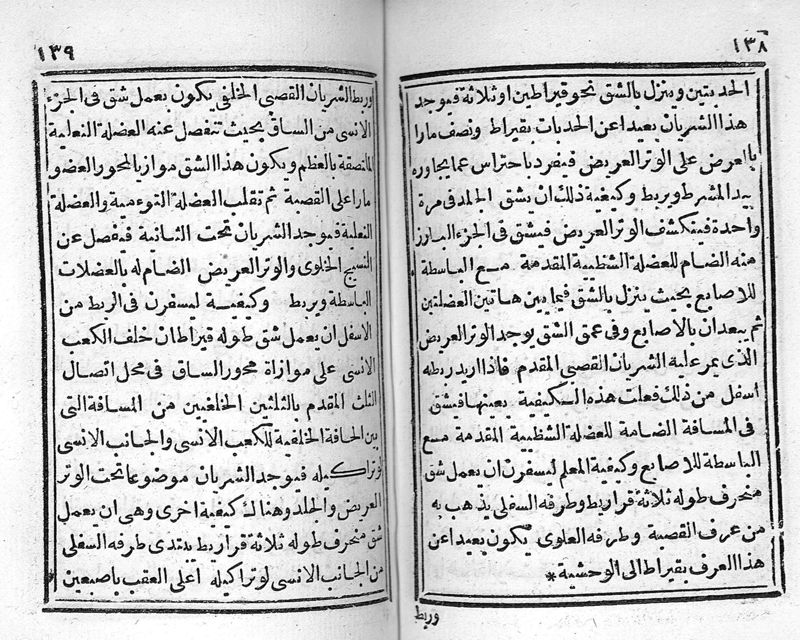 ١٣٨
الحدبتين وينزل بالشق نحو قيراطين او ثلاثة فيوجد
هذا الشريان بعيدا عن الحدبات بقيراط ونصف مارا
بالعرض على الوتر العريض فيفرد باحتراس عما يجاوره
بيد المشرط ويربط وكيفية ذلك ان يشق الجلد فى مرة
واحدة فينكشف الوتر العريض فيشق فى الجزء البارز
منه الضام للعضلة الشظيية المقدمة مع الباسطة
للاصابع بحيث ينزل بالشق فيما بين هاتين العضلتين
ثم يبعدان بالاصابع وفى عمق الشق يوجد الوتر العريض
الذى يمر عليه الشريان القصبى المقدم فاذا اريد ربطه
أسفل من ذلك فعلت هذه الكيفية بعينها فيشق
فى المسافة الضامة للعضلة الشظيية المقدمة مع
الباسطة للاصابع وكيفية المعلم ليسفرن ان يعمل شق
منحرف طوله ثلاثة قراريط وطرفه السفلى يذهب به
من عرف القصبة وطرفه العلوى يكون بعيدا عن
هذا العرف بقيراط الى الوحشية *
وربط
١٣٩
وربط الشريان القصبى الخلفى يكون بعمل شق فى الجزء
الانسى من الساق بحيث تنفصل عنه العضلة النعلية
الملتصقة بالعظم ويكون هذا الشق موازيا لمحور العضو
مارا على القصبة ثم تقلب العضلة التوءمية والعضلة
النعلية فيوجد الشريان تحت الثانية فيفصل عن
النسيج الخلوى والوتر العريض الضام له بالعضلات
الباسطة ويربط وكيفية ليسفرن فى الربط من
الاسفل ان يعمل شق طوله قيراطان خلف الكعب
الانسى على موازاة محور الساق فى محل اتصال
الثلث المقدم بالثلثين الخلفيين من المسافة التى
بين الحافة الخلفية للكعب الانسى والجانب الانسى
لوتر اكيله فيوجد الشريان موضوعا تحت الوتر
العريض والجلد وهناك كيفية اخرى وهى ان يعمل
شق منحرف طوله ثلاثة قراريط يبتدى طرفه السفلى
من الجانب الانسى لوتر اكيله اعلى العقب باصبعين